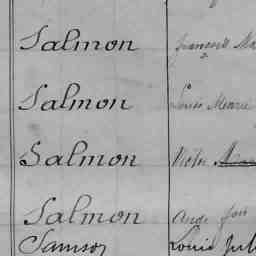 Salmon
Salmon Louis Marie
Salmon Victor
Salmon Ange
Samson Louis Jul